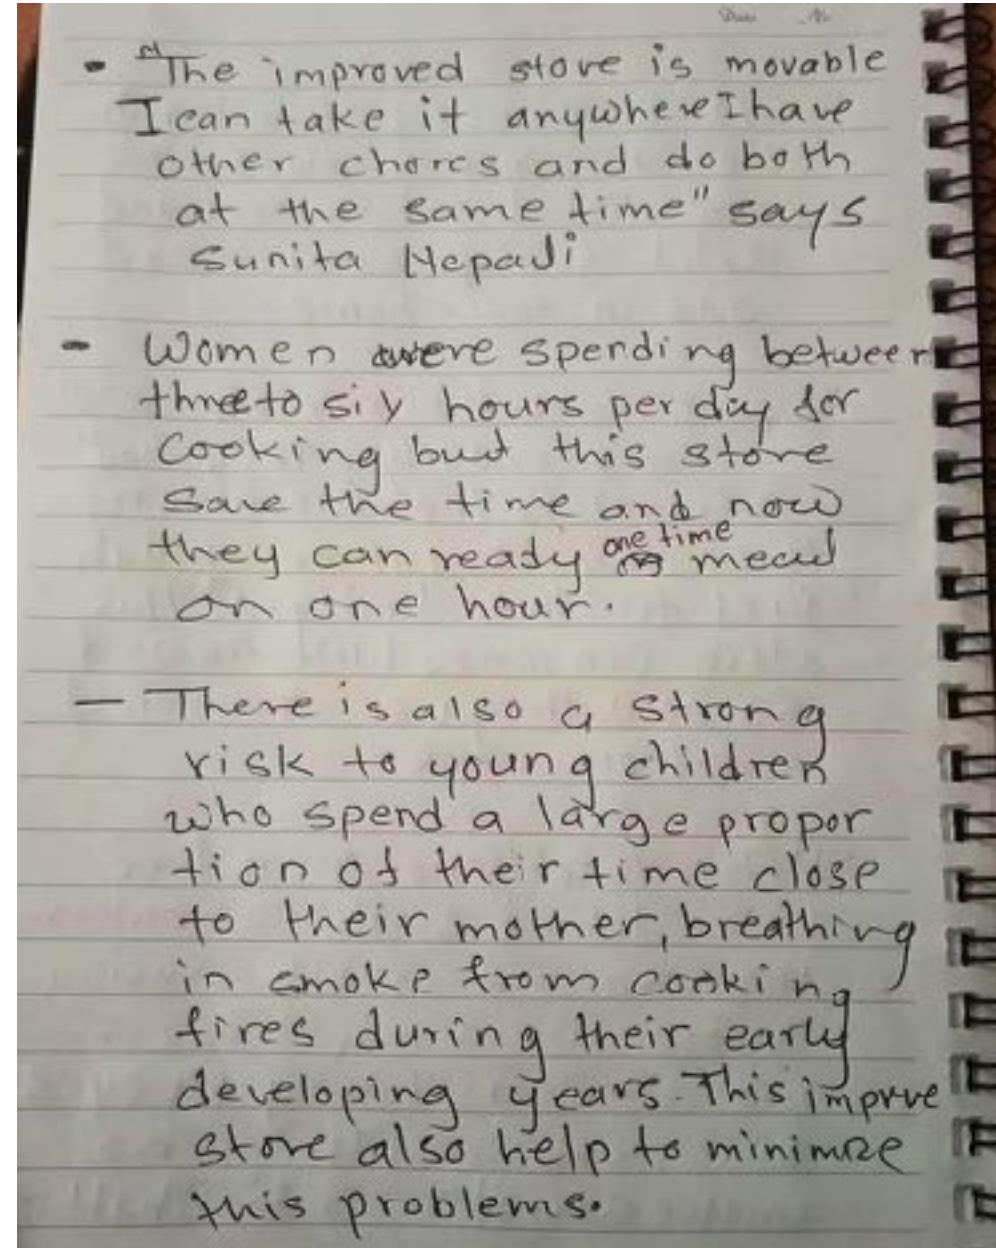 Date No
- "The improved stove is movable
I can take it anywhere I have
other chores and do both
at the same time" says
Sunita Nepali
- Women were spending between
three to six hours per day for
cooking but this stove
save the time and now
they can ready one time meal
on one hour.
- There is also a strong
risk to young children
who spend a large propor
tion of their time close
to their mother, breathing
in smoke from cooking
fires during their early
developing years. This imprve
stove also help to minimize
this problems.